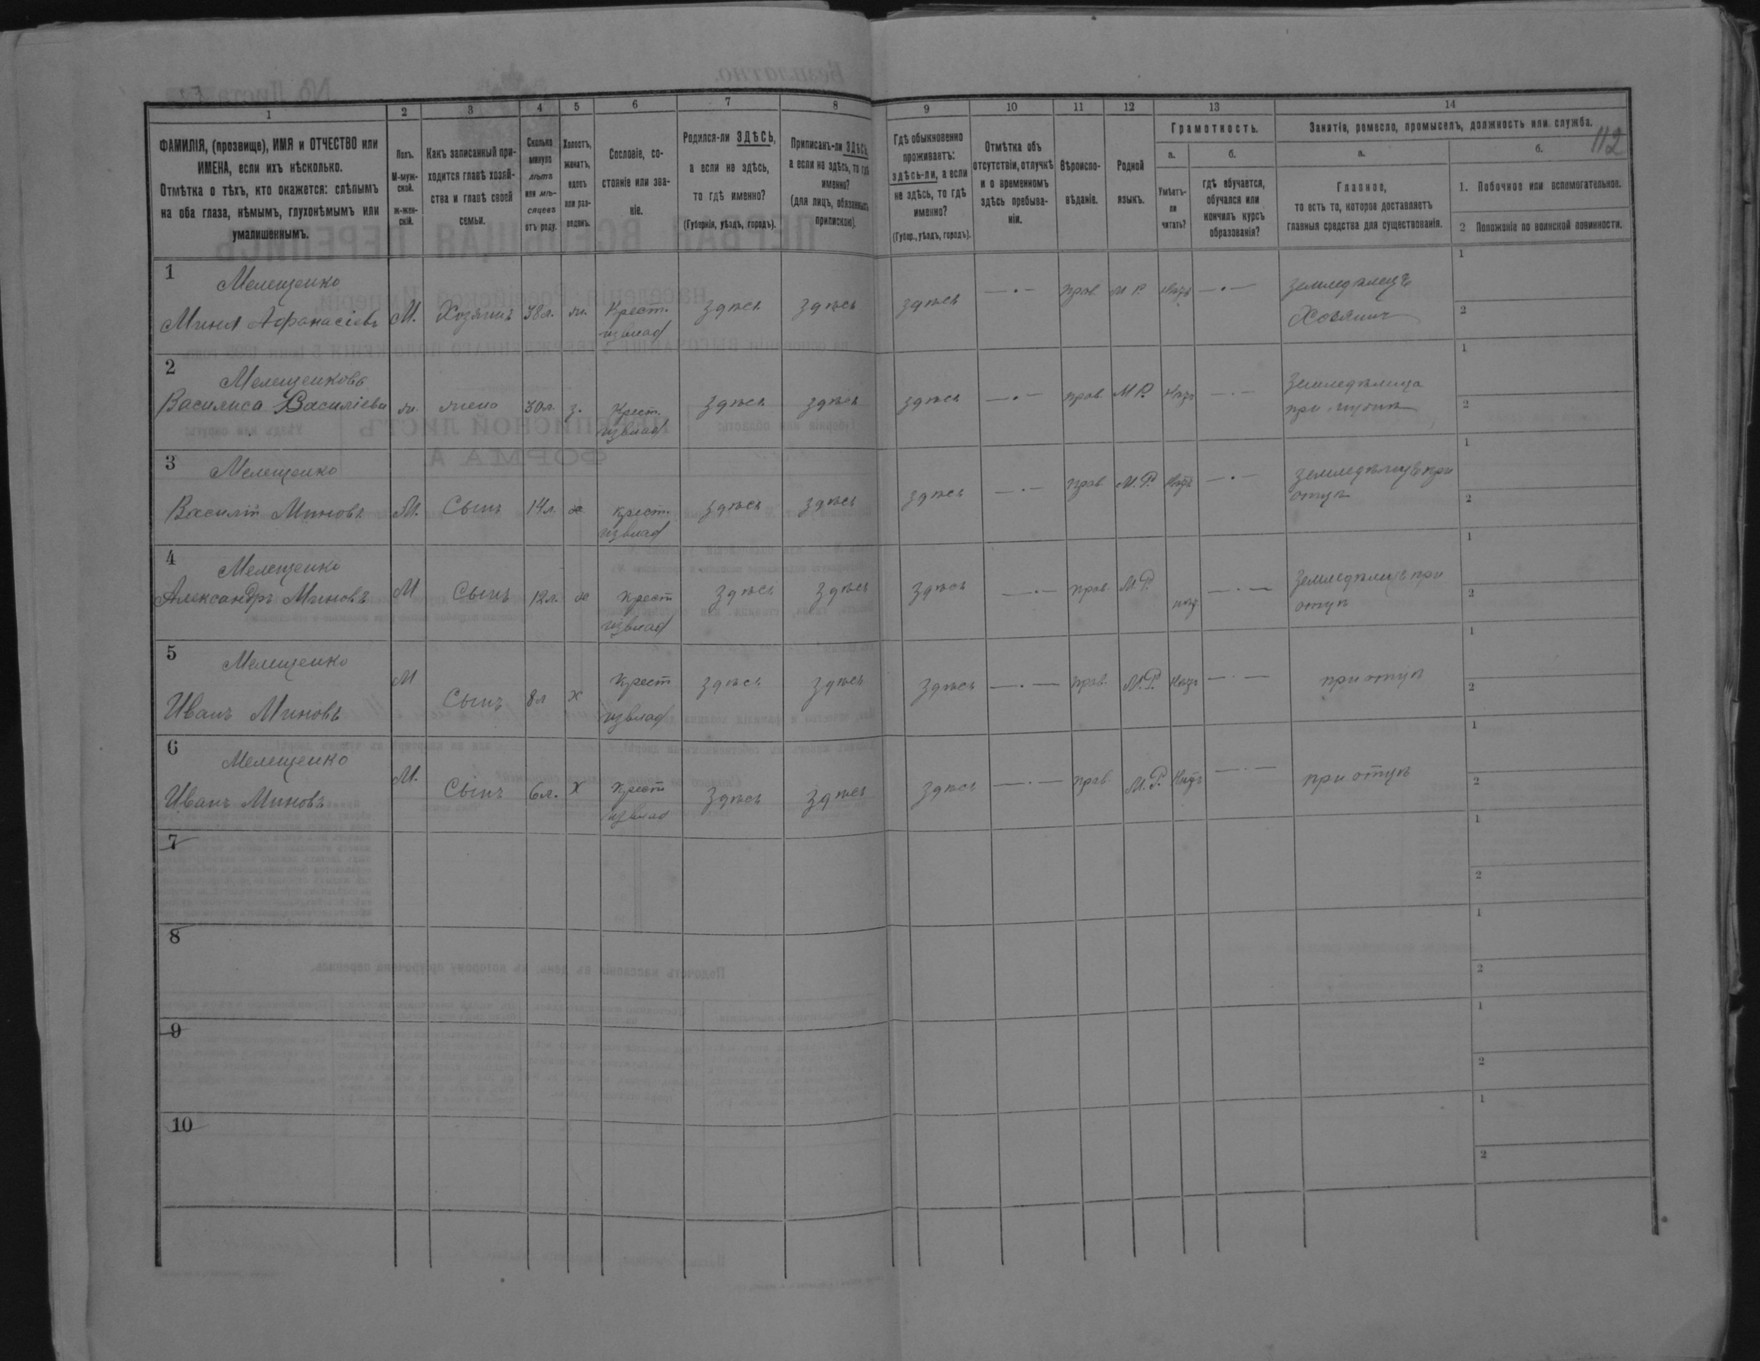 112
1 2 3 4 5 6 7 8 9 10 11 12 13 14
ФАМИЛІЯ, (прозвище), ИМЯ и ОТЧЕСТВО или ИМЕНА, если ихъ нѣсколько.
Отмѣтка о тѣхъ, кто окажется: слѣпымъ на оба глаза, нѣмымъ, глухонѣмымъ или умалишеннымъ.
Полъ.
М-муж-
ской.
Ж-жен-
скій.
Какъ записанный при-
ходится главѣ хозяй-
ства и главѣ своей
семьи.
Сколько
минуло
лѣтъ
или мѣ-
сяцевъ
отъ роду.
Холостъ,
женатъ,
вдовъ
или раз-
веденъ.
Сословіе, со-
стояніе или зва-
ніе.
Родился-ли ЗДѢСЬ,
а если не здѣсь,
то гдѣ именно?
(Губернія, уѣздъ, городъ).
Приписанъ-ли ЗДѢСЬ,
а если не здѣсь, то гдѣ
именно?
(для лицъ, обязанныхъ
припискою).
Гдѣ обыкновенно
проживаетъ:
здѣсь-ли, а если
не здѣсь, то гдѣ
именно?
(Губер., уѣздъ, городъ).
Отмѣтка объ
отсутствіи, отлучкѣ
и о временномъ
здѣсь пребыва-
ніи.
Вѣроиспо-
вѣданіе.
Родной
языкъ.
Грамотность.
а.
Умѣетъ-
ли
читать?
б.
гдѣ обучается,
обучался или
кончилъ курсъ
образованія?
Занятія, ремесло, промыселъ, должность или служба.
а.
Главное,
то есть то, которое доставляетъ
главныя средства для существованія.
б.
1. Побочное или вспомогательное.
2 Положеніе по воинской повинности.
1
Мелещенко
Мина Афанасіевъ М. Хозяинъ 38л. ж. Крест. здѣсь здѣсь здѣсь — · — прав М Р. — · — земледѣлецъ
Хозяинъ
1
2
2
Мелещенкова
Василиса Василіева ж. жена 30л. з. Крест. здѣсь здѣсь здѣсь — · — прав М Р. — · — земледѣлица
1
2
3
Мелещенко
Василій Миновъ М. Сынъ 14л. х крест. здѣсь здѣсь здѣсь — · — прав М. Р. — · — при
отцѣ
1
2
4
Мелещенко
Александръ Миновъ М Сынъ 12л. х крест здѣсь здѣсь здѣсь — · — прав М Р. — · — при
отцѣ
1
2
5
Мелещенко
Иванъ Миновъ М Сынъ 8л х крест здѣсь здѣсь здѣсь — · — прав. М. Р. — · — при отцѣ
1
2
6
Мелещенко
Иванъ Миновъ М. Сынъ 6л. х крест здѣсь здѣсь здѣсь — · — прав М. Р. — · — при отцѣ
1
2
7
1
2
8
1
2
9
1
2
10
1
2